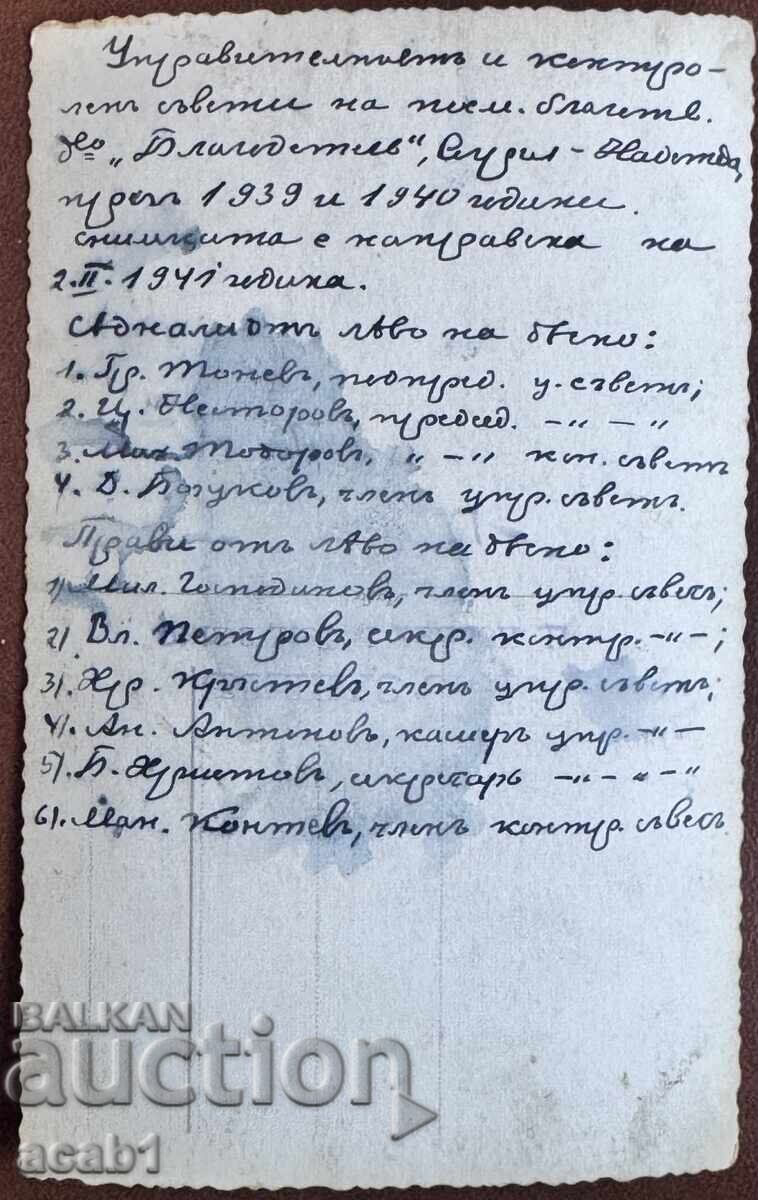 Управителностъ и контро-
ленъ съвети на посм. благотв.
д-во „Благодетель“, - Надежда,
презъ 1939 и 1940 години.
снимката е направена на
2.II.1941 година.
Седнали отъ лѣво на дѣсно:
1. Гр. Тоневъ, подпред. у. съветъ;
2. Ц. Несторовъ, председ. -„-„
3. Мих. Тодоровъ, „-„ кон. съветъ
4. Д. Божуковъ, членъ упр. съветъ.
Прави отъ лѣво на дѣсно:
1). Мил. Господиновъ, членъ упр. съветъ;
2). Вл. Петровъ, секр. контр. -„-;
3). Хр. Кръстевъ, членъ упр. съветъ;
4). Ан. Антоновъ, касиеръ упр. -„-
5). Б. Христовъ, секретарь -„-„-„
6). Ман. Контевъ, членъ контр. съветъ.
BALKAN
auction
acab1